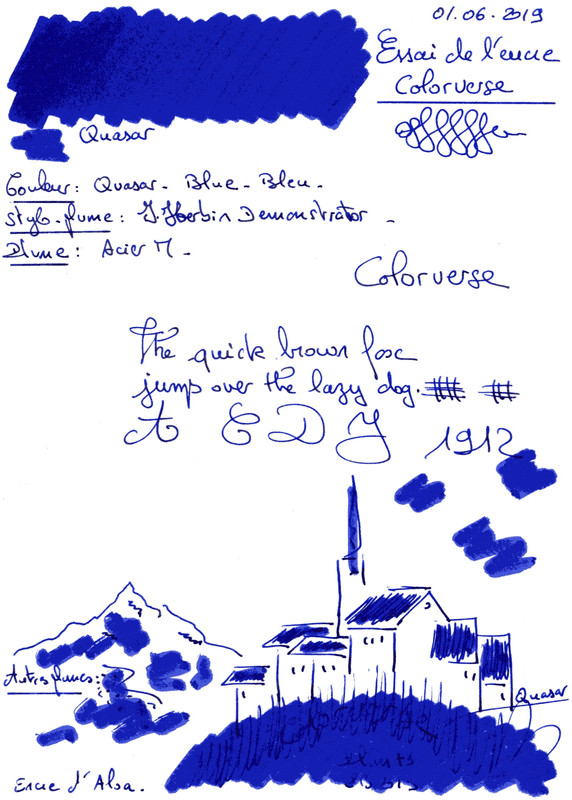 01.06.2019
Essai de l'encre
Colorverse
Quasar
Couleur: Quasar - Blue - Bleu -
Stylo-plume: J. Herbin Demonstrator -
Plume: Acier M -
Colorverse
The quick brown fox
jump over the lazy dog.
A E D J 1912
Autres plumes:
Quasar
Encre d'Alsa.